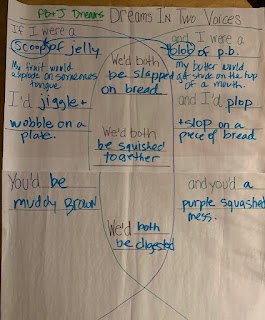 PB+J Dreams Dreams In Two Voices
If I were a
scoop of jelly
My fruit would
explode on someones
tongue
I'd jiggle +
wobble on a
plate.
You'd be
muddy brown
We'd both
be slapped
on bread
We'd both
be squished
together
We'd both
be digested
and I were a
blob of p.b.
My butter would
get stuck on the top
of a mouth.
and I'd plop
+ slop on a
piece of bread
and you'd a
purple squashed
mess.